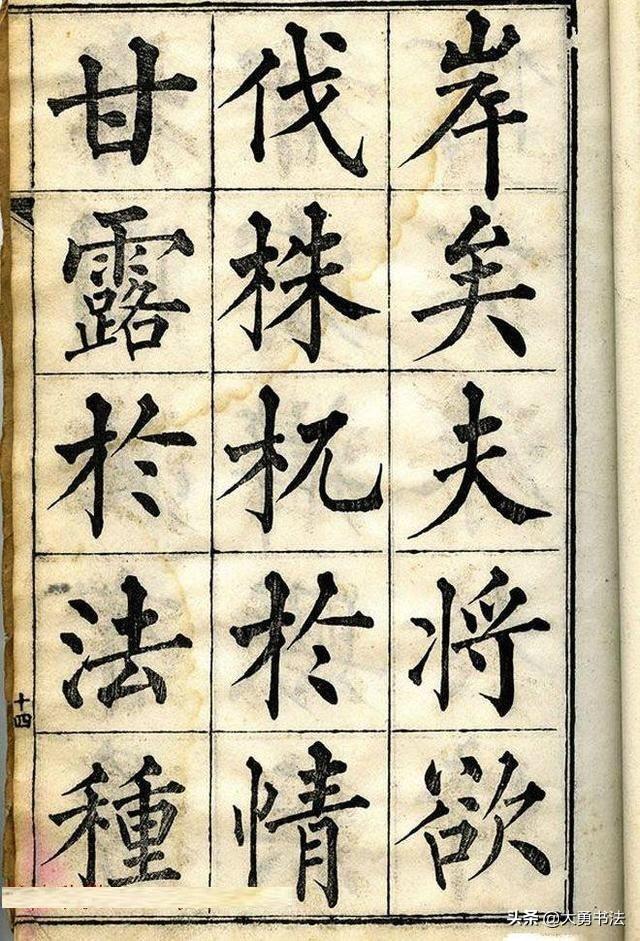 岸矣夫将欲
伐株杌於情
甘露於法種
十四
头条 @大勇书法